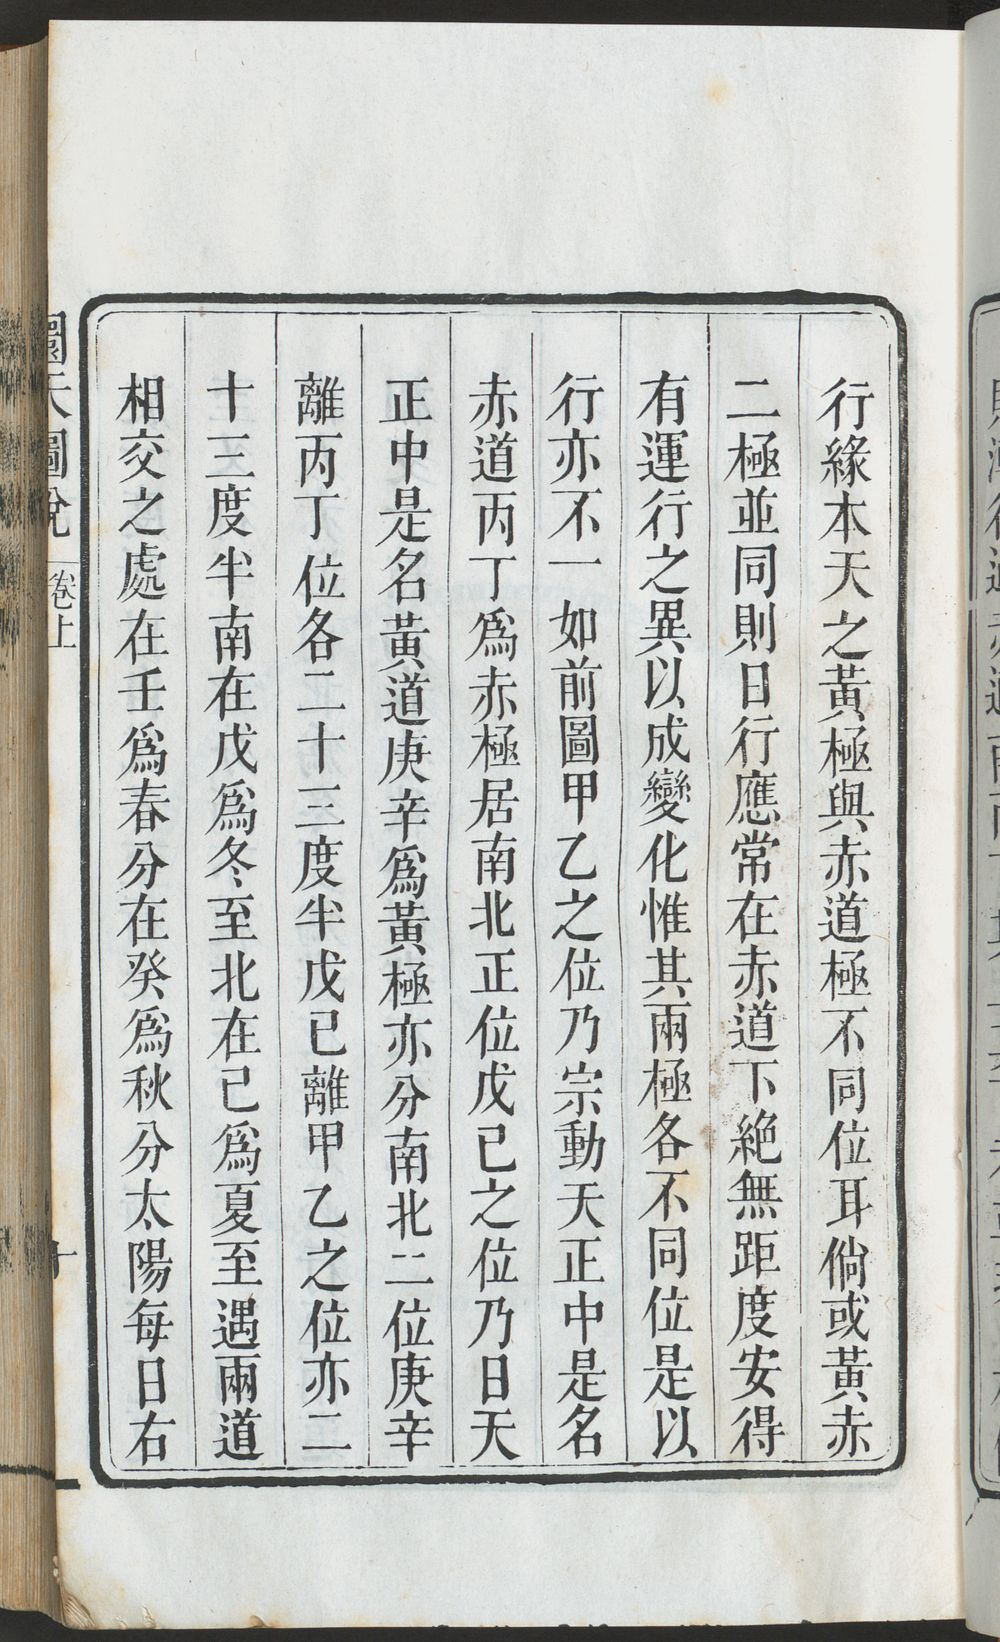 行緣本天之黃極與赤道極不同位耳倘或黃赤
二極並同則日行應常在赤道下絶無距度安得
有運行之異以成變化惟其兩極各不同位是以
行亦不一如前圖甲乙之位乃宗動天正中是名
赤道丙丁爲赤極居南北正位戊已之位乃日天
正中是名黃道庚辛爲黃極亦分南北二位庚辛
離丙丁位各二十三度半戊已離甲乙之位亦二
十三度半南在戊爲冬至北在已爲夏至遇兩道
相交之處在壬爲春分在癸爲秋分太陽每日右
圜天圖說
卷上